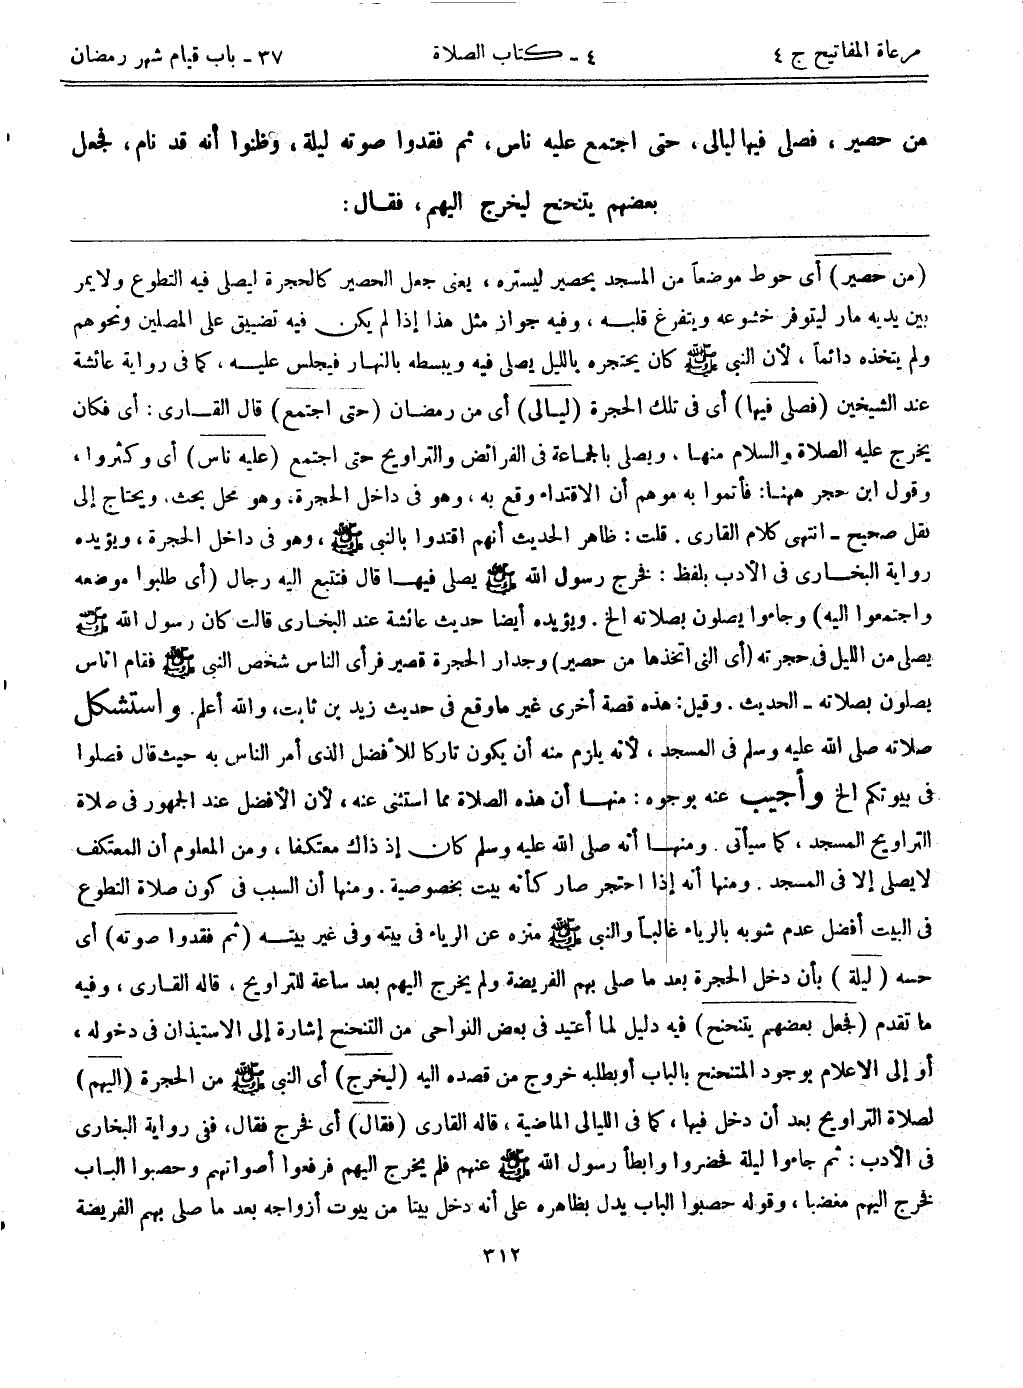 مرعاة المفاتيح ج ٤
٤ - كتاب الصلاة
٣٧ - باب قيام شهر رمضان
من حصير ، فصلى فيها ليالى، حتى اجتمع عليه ناس ، ثم فقدوا صوته ليلة، وظنوا أنه قد نام، فجعل
بعضهم يتنحنح ليخرج اليهم، فقال:
(من حصير) أى حوط موضعاً من المسجد بحصير ليستره ، يعنى جعل الحصير كالحجرة ليصلى فيه التطوع ولايمر
بين يديه مار ليتوفر خشوعه ويتفرغ قلبه ، وفيه جواز مثل هذا إذا لم يكن فيه تضييق على المصلين ونحوهم
ولم يتخذه دائماً ، لأن النبى ﷺ كان يحتجره بالليل يصلى فيه ويبسطه بالنهار فيجلس عليه ، كما فى رواية عائشة
عند الشيخين (فصلى فيها) أى فى تلك الحجرة (ليالى) أى من رمضان (حتى اجتمع) قال القارى : أى فكان
يخرج عليه الصلاة والسلام منها ، ويصلى بالجماعة فى الفرائض والتراويح حتى اجتمع (عليه ناس) أى وكثروا ،
وقول ابن حجر ههنا: فأتموا به موهم أن الاقتداء وقع به ، وهو فى داخل الحجرة، وهو محل بحث، ويحتاج إلى
نقل صحيح - انتهى كلام القارى . قلت : ظاهر الحديث أنهم اقتدوا بالنبى ﷺ ، وهو فى داخل الحجرة ، ويؤيده
رواية البخارى فى الأدب بلفظ : فخرج رسول الله ﷺ يصلى فيها قال فتتبع اليه رجال (أى طلبوا موضعه
واجتمعوا اليه) وجاءوا يصلون بصلاته الخ . ويؤيده أيضا حديث عائشة عند البخارى قالت كان رسول الله ﷺ
يصلى من الليل فى حجرته (أى التى اتخذها من حصير) وجدار الحجرة قصير فرأى الناس شخص النبى ﷺ فقام اناس
يصلون بصلاته - الحديث . وقيل: هذه قصة أخرى غير ماوقع فى حديث زيد بن ثابت، والله أعلم. واستشكل
صلاته صلى الله عليه وسلم فى المسجد ، لأنه يلزم منه أن يكون تاركا للأفضل الذى أمر الناس به حيث قال فصلوا
فى بيوتكم الخ وأجيب عنه بوجوه : منها أن هذه الصلاة مما استثنى عنه ، لأن الأفضل عند الجمهور فى صلاة
التراويح المسجد ، كما سيأتى . ومنها أنه صلى الله عليه وسلم كان إذ ذاك معتكفا ، ومن المعلوم أن المعتكف
لايصلى إلا فى المسجد . ومنها أنه إذا احتجر صار كأنه بيت بخصوصية . ومنها أن السبب فى كون صلاة التطوع
فى البيت أفضل عدم شوبه بالرياء غالباً والنبى ﷺ منزه عن الرياء فى بيته وفى غير بيته (ثم فقدوا صوته) أى
حسه (ليلة) بأن دخل الحجرة بعد ما صلى بهم الفريضة ولم يخرج اليهم بعد ساعة للتراويح ، قاله القارى ، وفيه
ما تقدم (فجعل بعضهم يتنحنح) فيه دليل لما أعتيد فى بعض النواحى من التنحنح إشارة إلى الاستيذان فى دخوله ،
أو إلى الاعلام بوجود المتنحنح بالباب أوبطلبه خروج من قصده اليه (ليخرج) أى النبى ﷺ من الحجرة (اليهم)
لصلاة التراويح بعد أن دخل فيها ، كما فى الليالى الماضية ، قاله القارى (فقال) أى فخرج فقال، ففى رواية البخارى
فى الأدب : ثم جاءوا ليلة فحضروا وابطأ رسول الله ﷺ عنهم فلم يخرج اليهم فرفعوا أصواتهم وحصبوا الباب
فخرج اليهم مغضبا ، وقوله حصبوا الباب يدل بظاهره على أنه دخل بيتا من بيوت أزواجه بعد ما صلى بهم الفريضة
٣١٢